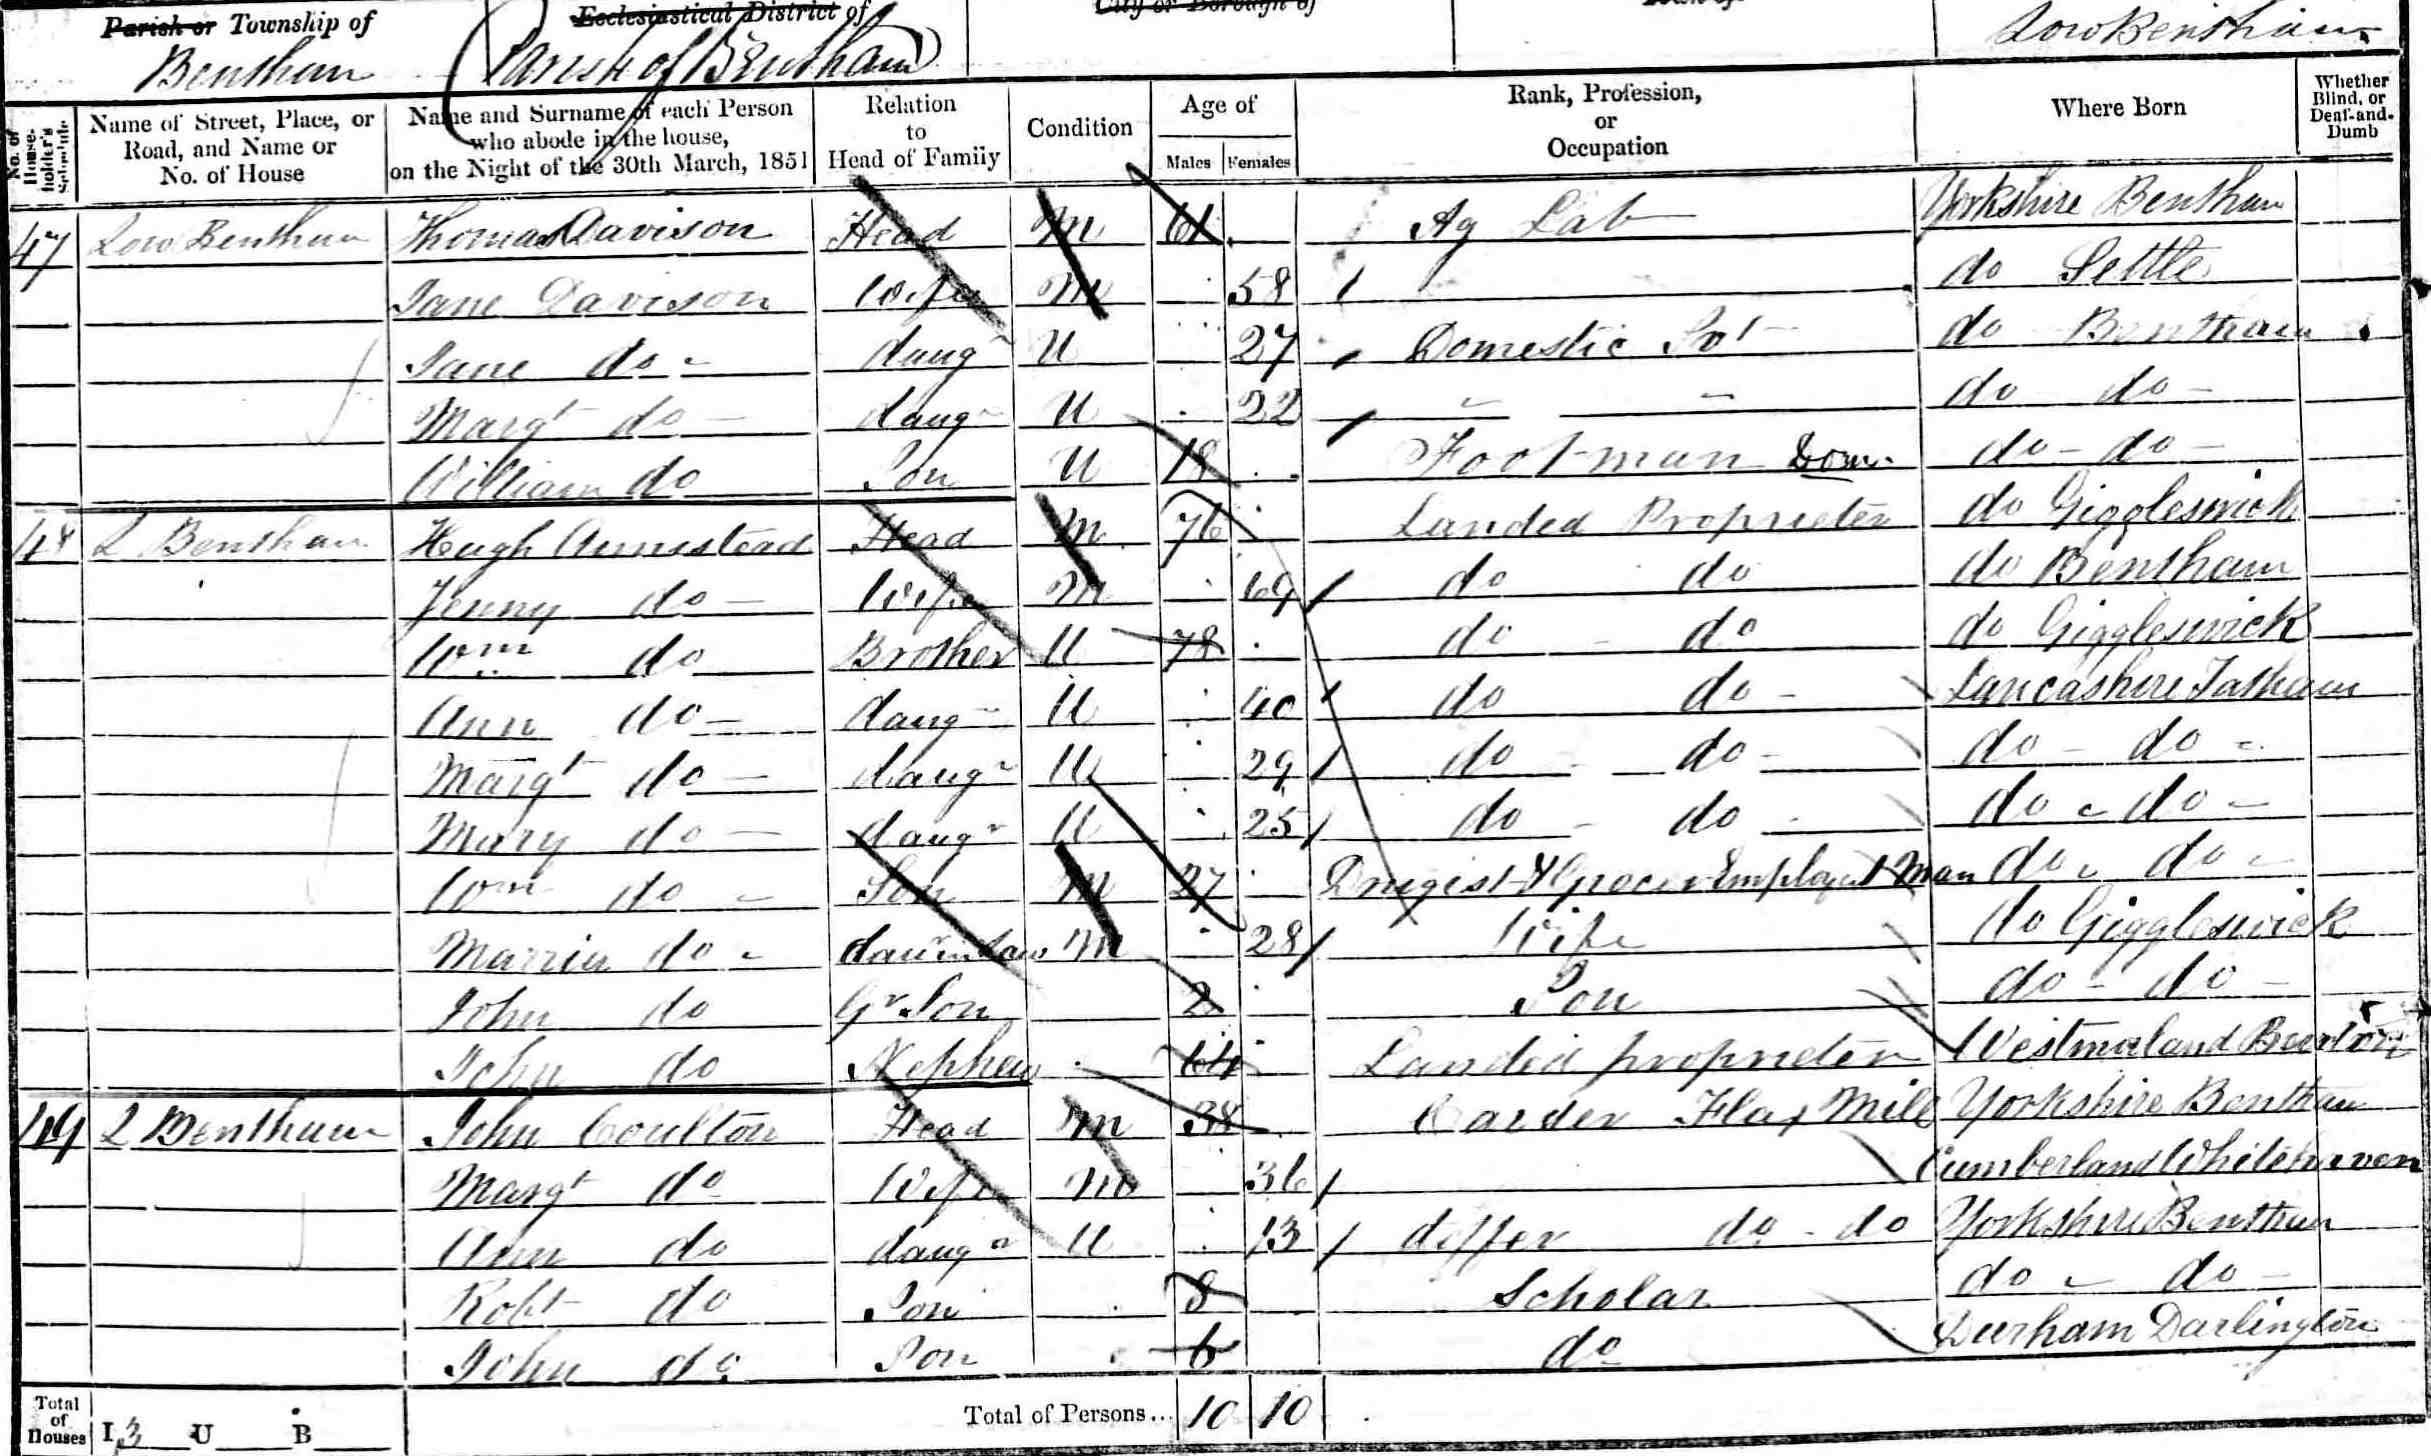 Parish or Township of Ecclesiastical District of City or Borough of
Bentham (Parish of Bentham) Low Bentham
No. of House-holder's Schedule Name of Street, Place, or Road, and Name or No. of House Name and Surname of each Person who abode in the house, on the Night of the 30th March, 1851 Relation to Head of Family Condition Age of Males Females Rank, Profession, or Occupation Where Born Whether Blind, or Deaf-and-Dumb
47 Low Bentham Thomas Davison Head M 61 Ag Lab Yorkshire Bentham
Jane Davison Wife M 58 do Settle
Jane do - daugr U 27 Domestic Svt do Bentham
Margt do - daugr U 22 - - do do -
William do Son U 18 Footman Dom. do - do -
48 L Bentham Hugh Armistead Head M 76 Landed Proprietor do Giggleswick
Jenny do - Wife M 69 do do do Bentham
Wm do Brother U 78 do - do do Giggleswick
Ann do - daugr U 40 do do - Lancashire Tatham
Margt do - daugr U 29 do - do - do - do -
Mary do - daugr U 25 do - do - do - do -
Wm do - Son M 27 Drugist & Grocer Employs 1 Man do - do -
do - daur in Law M 28 Wife do Giggleswick
John do Gr Son 2 Son do - do -
John do Nephew 44 Landed proprietor Westmorland Burton
49 L Bentham John Coulton Head M 38 Carder Flax Mill Yorkshire Bentham
Margt do Wife M 36 Cumberland Whitehaven
Ann do daugr U 13 doffer do - do Yorkshire Bentham
Robt do Son 8 Scholar do - do -
John do Son 6 do Durham Darlington
Total of Houses I 3 U B Total of Persons... 10 10